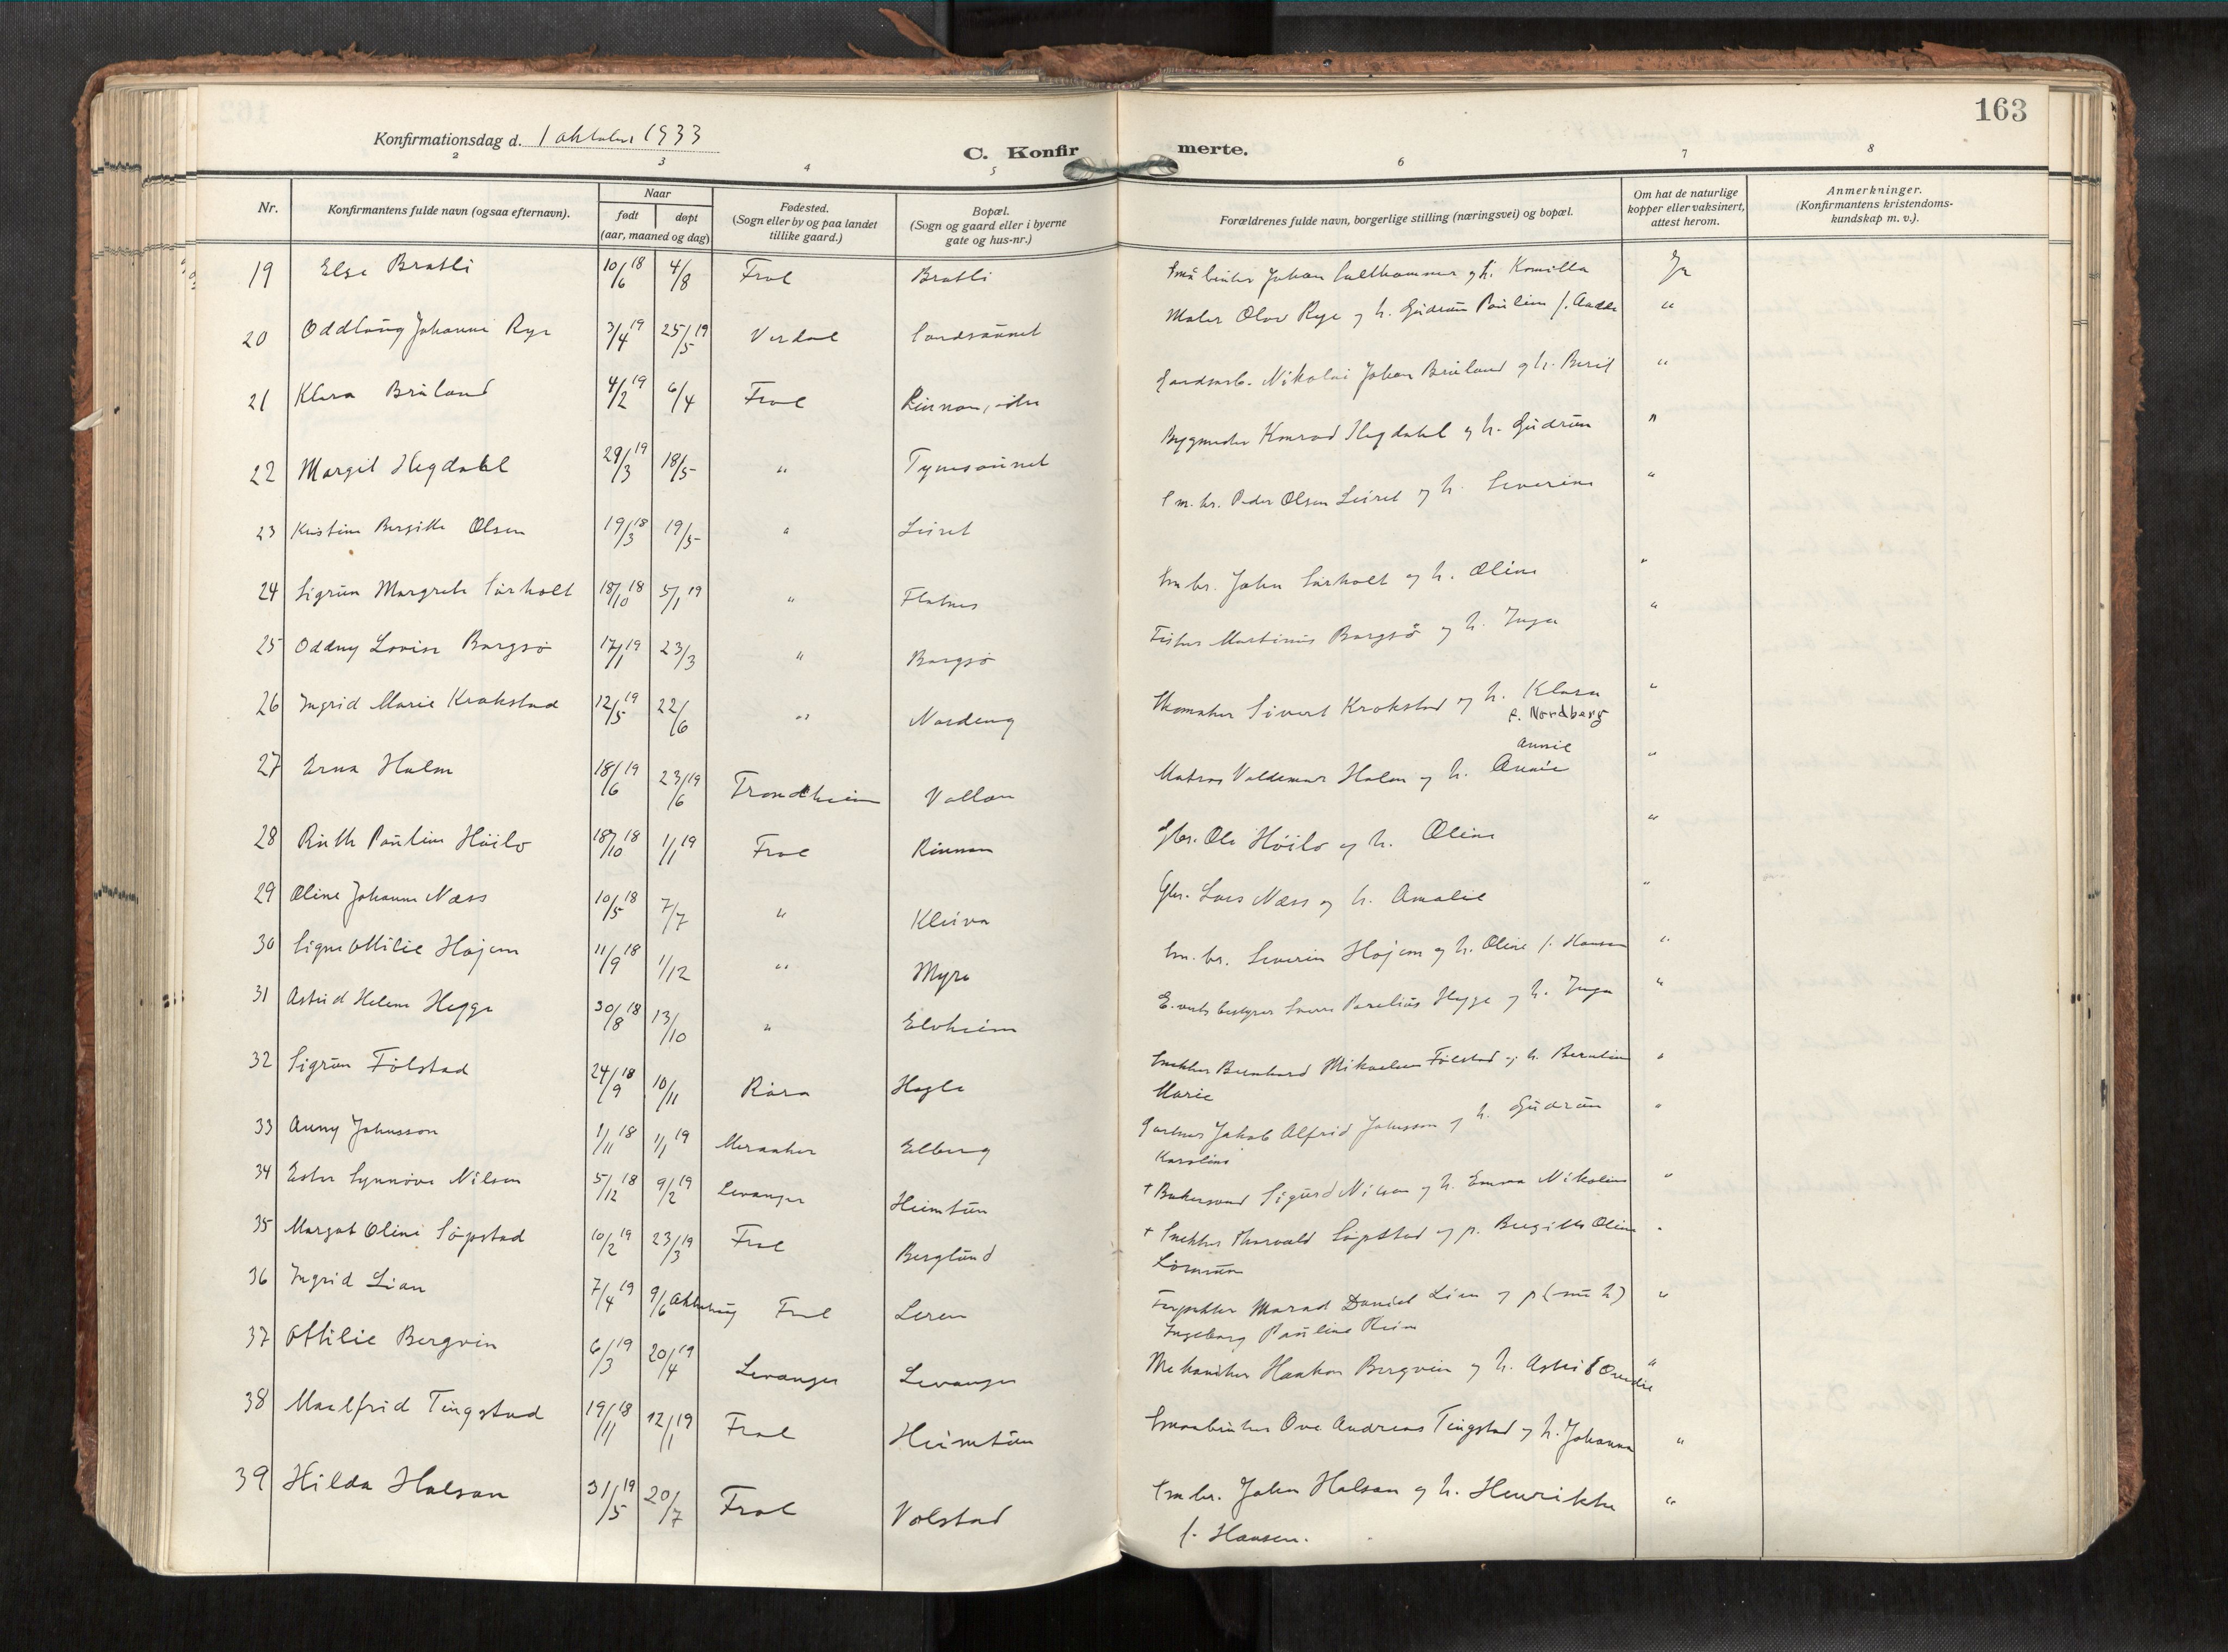 163
Konfirmationsdag d. 1 oktober 1933
C. Konfirmerte.
2 3 4 5 6 7 8
Nr.
Konfirmantens fulde navn (ogsaa efternavn).
Naar
født døpt
(aar, maaned og dag)
Fødested.
(Sogn eller by og paa landet
tillike gaard.)
Bopæl.
(Sogn og gaard eller i byerne
gate og hus-nr.)
Forældrenes fulde navn, borgerlige stilling (næringsvei) og bopæl.
Om hat de naturlige
kopper eller vaksinert,
attest herom.
Anmerkninger.
(Konfirmantens kristendoms-
kundskap m. v.).
19 Else Bratli 10/6 18 4/8 Frol Bratli Småbruker Johan h. Kornilla Ja
20 Oddlaug Johanne Rye 3/4 19 25/5 19 Verdal Maler Olav Rye og h. Gudrun Pauline f. "
21 Klara Bruland 4/2 19 6/4 Frol Rinnan, Nikolai Johan Bruland og h. Berit "
22 Margit Hegdahl 29/3 19 18/5 " Konrad Hegdahl og h. Gudrun "
23 Kristine Bergitte Olsen 19/3 18 19/5 " Leiret Sm.br. Peder Olsen Leiret og h. Severine "
24 Sigrun Margrete 18/10 18 5/1 19 " Flatnes Sm br. John og h. Oline "
25 Oddny Lovise Borgsø 17/1 19 23/3 " Borgsø Fisker Martinus Borgsø og h. Inga "
26 Ingrid Marie Krokstad 12/5 19 22/6 " Nordeng Skomaker Sivert Krokstad og h. Klara "
f. Nordberg
Annie
27 Erna Holm 18/6 19 23/6 19 Trondheim Vollan Matros Valdemar Holm og h. Annie "
28 Ruth Pauline Høilo 18/10 18 1/1 19 Frol Rinnan Gbr. Ole Høilo og h. Oline "
29 Oline Johanne Næss 10/5 18 7/7 " Kleiva Gbr. Lars Næss og h. Amalie "
30 Signe Ottilie Højem 11/9 18 1/12 " Myra Sm.br. Severin Højem og h. Oline f. Hansen "
31 Astrid Helene Hegge 30/8 18 13/10 " Elvheim E.verks bestyrer Parelius Hegge og h. Inga "
32 Sigrun Følstad 24/9 18 10/11 Røra Hegle Snekker Bernhard Mikaelsen Følstad og h. Berntine "
Marie
33 Anny Johnsson 1/11 18 1/1 19 Meraaker Elberg Gartner Jakob Alfrid Johnsson og h. Gudrun "
Karoline
34 Ester Synnøve Nilsen 5/12 18 9/2 19 Levanger Heimtun † Bakersvend Sigurd Nilsen og h. Emma Nikoline "
35 Margot Oline Søpstad 10/2 19 23/3 19 Frol Berglund † Snekker Thorvald Søpstad og p. Bergitte Oline "
36 Ingrid Lian 7/4 19 9/6 Frol Leren Marad Daniel Lian og p (nu h) "
Ingeborg Pauline Reim
37 Ottilie Bergvin 6/3 19 20/4 19 Levanger Levanger Mekaniker Haakon Bergvin og h. Astrid "
38 Maalfrid Tingstad 19/11 18 12/1 19 Frol Heimtun Smaabruker Ove Andreas Tingstad og h. Johanna "
39 Hilda Halsan 31/5 19 20/7 Frol Volstad Sm br. John Halsan og h. Henrikke "
f. Hansen.